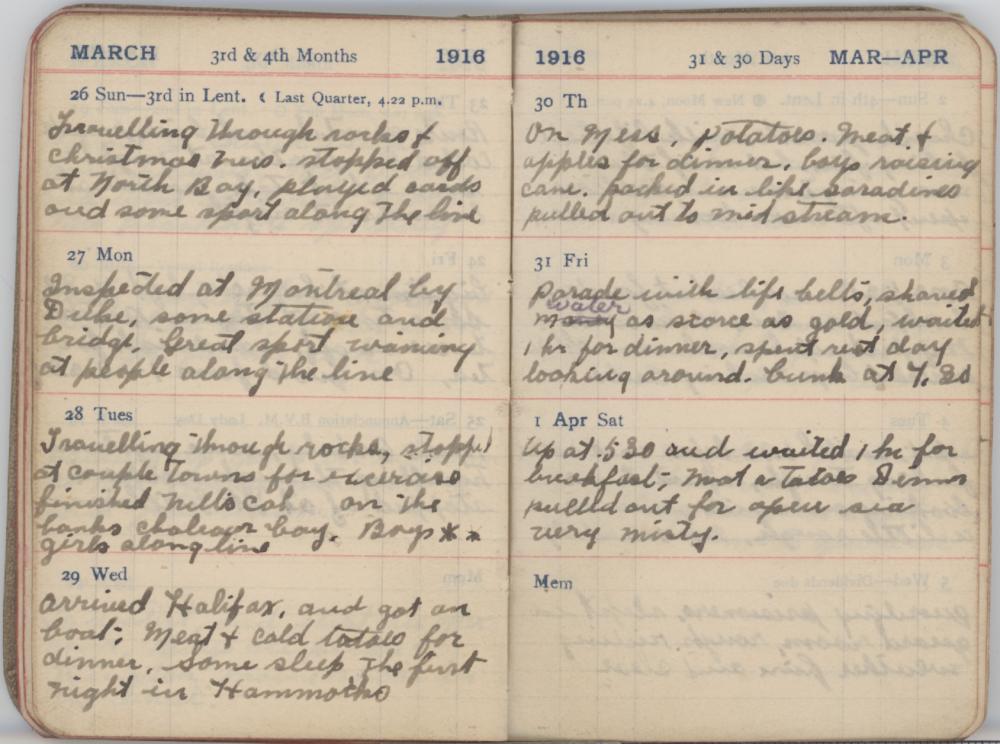 MARCH 3rd & 4th Months 1916
26 Sun—3rd in Lent. ☾ Last Quarter, 4.22 p.m.
Travelling through rocks &
christmas trees. stopped off
at North Bay, played cards
and some sport along the line
27 Mon
Inspected at Montreal by
some station and
bridge, Great sport waving
at people along the line
28 Tues
Travelling through rocks, stopped
at couple towns for exercise
finished Nell's cake on the
banks chaleur bay. Boys **
girls along line
29 Wed
Arrived Halifax, and got on
boat; Meat & cold tatoes for
dinner, some sleep the first
night in Hammocks
1916 31 & 30 Days MAR—APR
30 Th
On Mess, Potatoes. Meat &
apples for dinner. boys raising
cane. packed in like saradines
pulled out to mid stream.
31 Fri
Parade with life belts, shaved
water
money as scarce as gold, waited
1 hr for dinner, spent rest day
looking around. bunk at 7.30
1 Apr Sat
Up at 530 and waited 1 hr for
breakfast; meat & tatoes
pulled out for open sea
very misty.
Mem